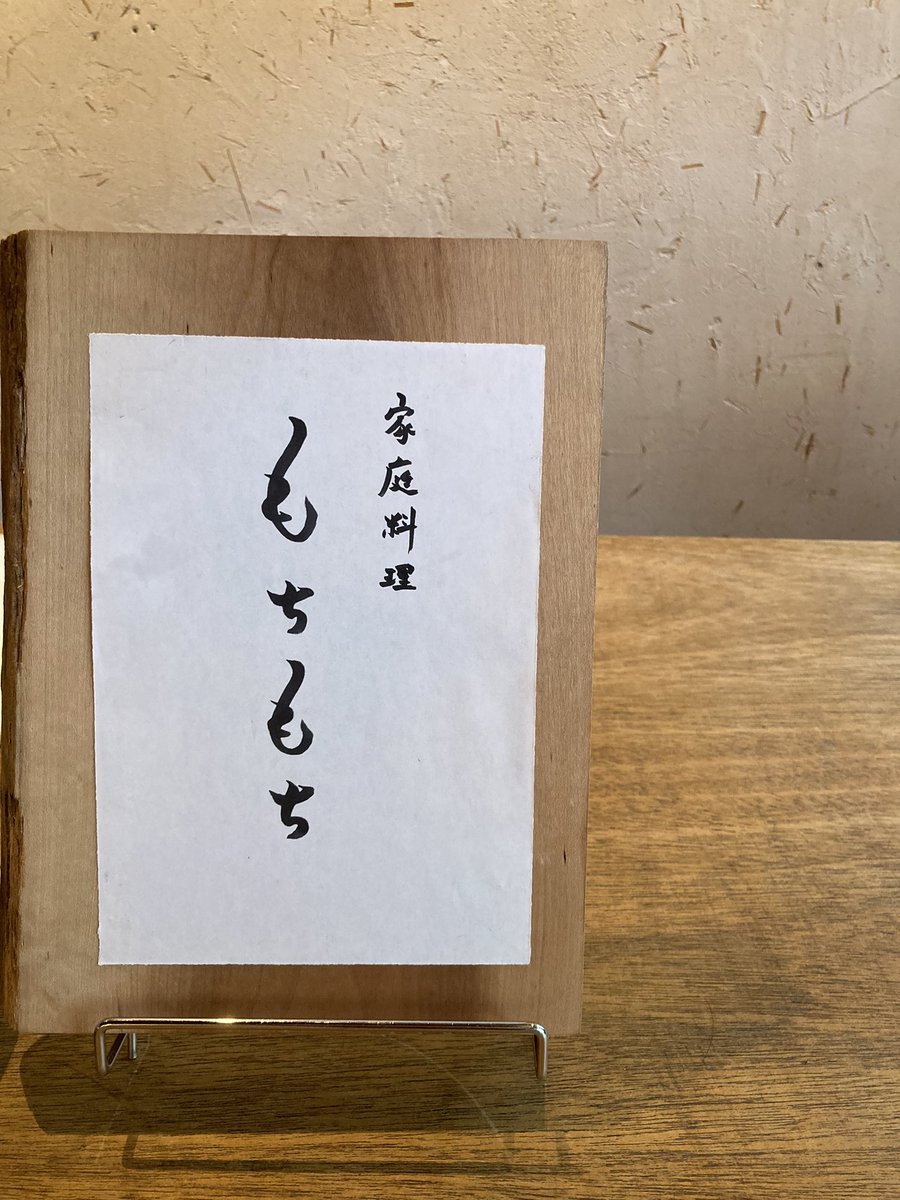 家庭料理
もちもち